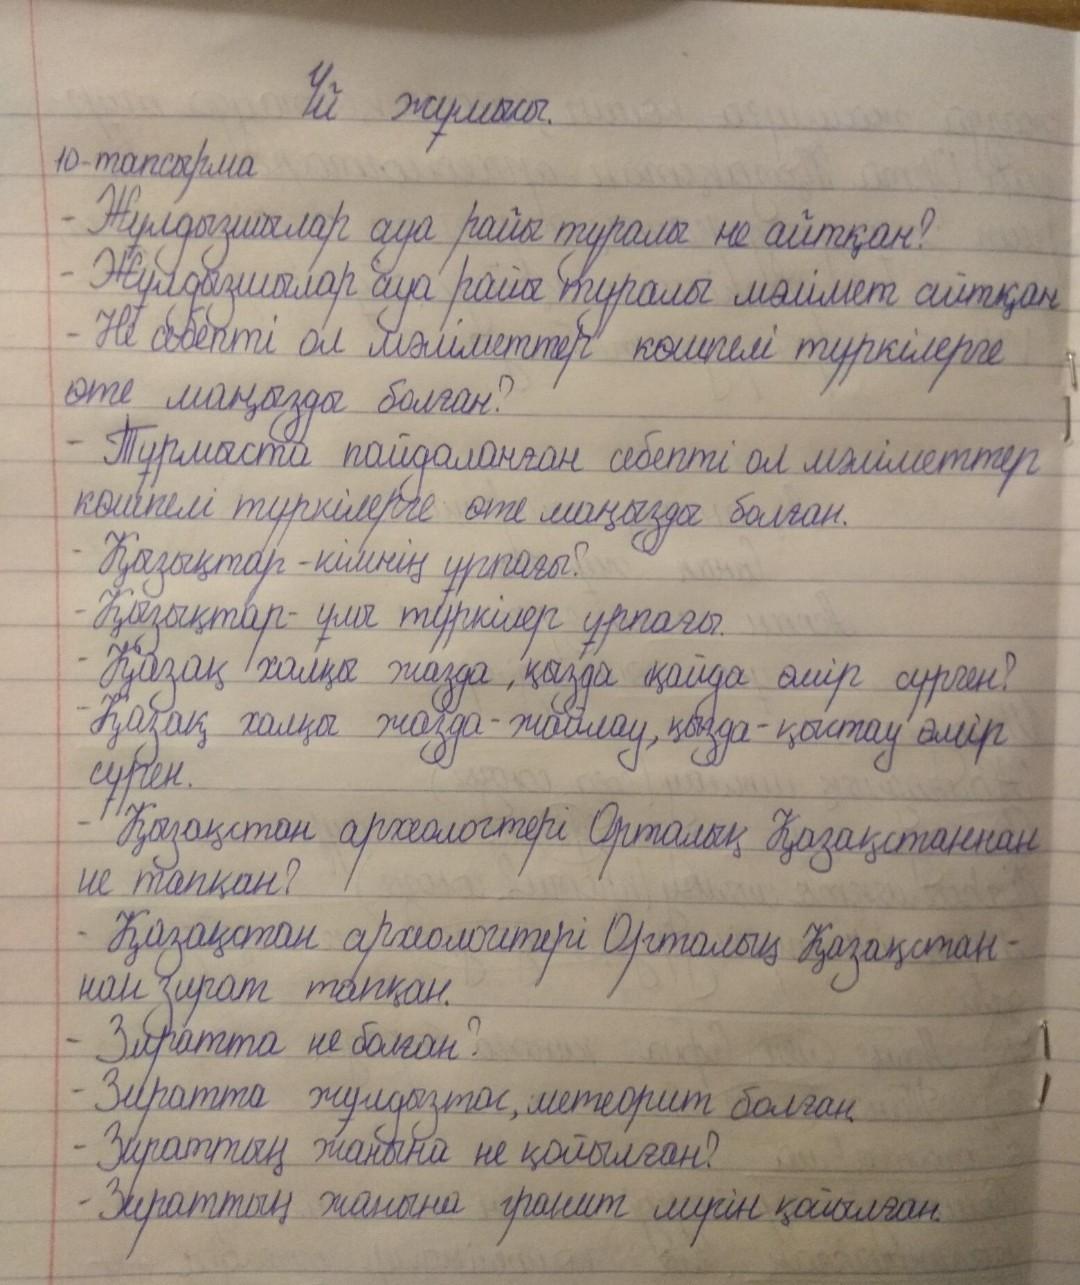 Үй жұмысы.
10-тапсырма
- Жұлдызшылар ауа райы туралы не айтқан?
- Жұлдызшылар ауа райы туралы мәлімет айтқан
- Не себепті ол мәліметтер көшпелі түркілерге
өте маңызды болған?
- Тұрмыста пайдаланған себепті ол мәліметтер
көшпелі түркілерге өте маңызды болған.
- Қызықтар - кімнің ұрпағы?
- Қызықтар - ұлы түркілер ұрпағы.
- Қазақ халқы жазда, қызда қайда өмір сүрген?
- Қазақ халқы жазда - жайлау, қызда - қыстау өмір
сүрген.
- Қызақстан археологтері Орталық Қазақстаннан
не тапқан?
- Қазақстан археологтері Орталық Қазақстан-
нан зират тапқан.
- Зиратта не болған?
- Зиратта жұлдызтас, метеорит болған
- Зираттың жанына не қойылған?
- Зираттың жанына гранит қойылған.